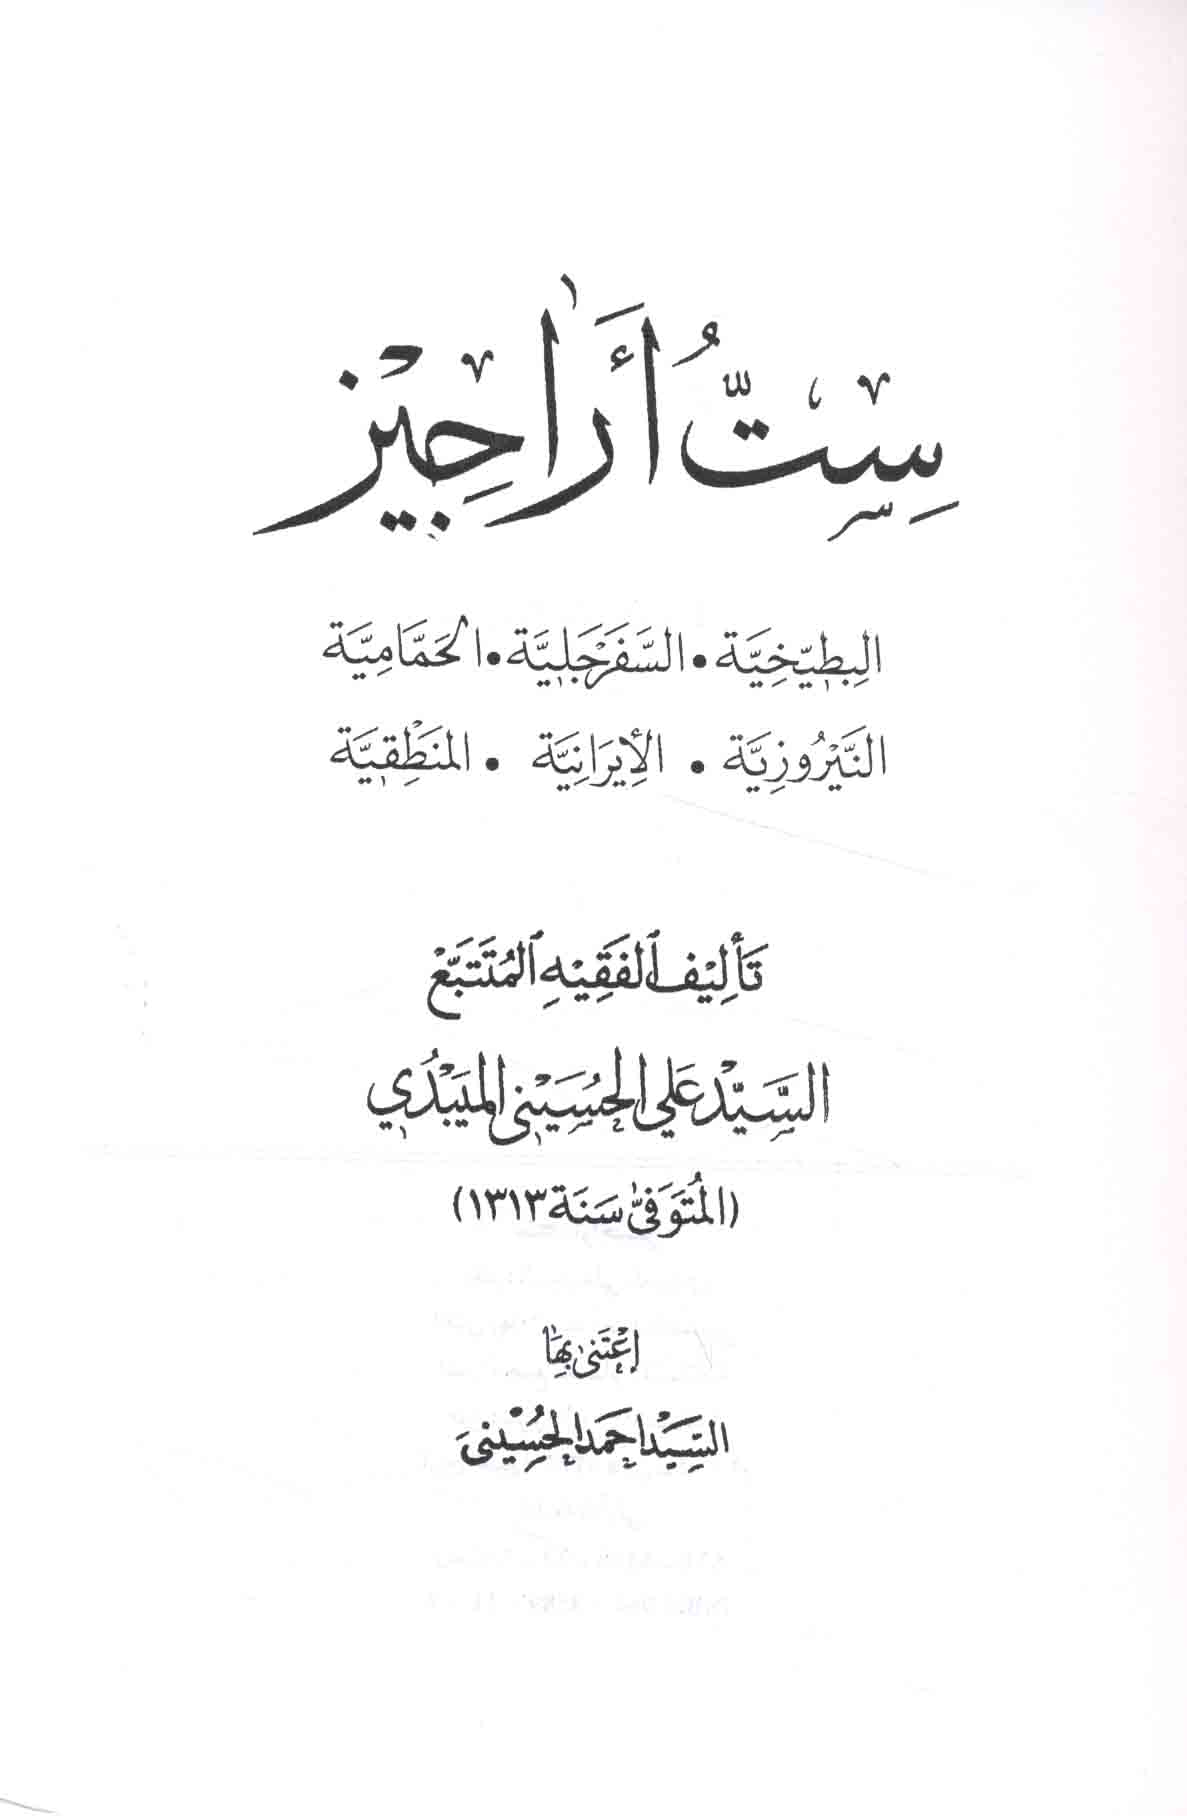 سِتُّ أَراجِيْز
البِطِّيخِيَّة • السَّفَرْجَلِيَّة • الحَمَّامِيَّة
النَّيْرُوزِيَّة • الإِيرَانِيَّة • المَنطْقِيَّة
تَأْلِيْف الفَقِيْهِ المُتَتَبِّعْ
السَّيِّدْ عَلي الحُسَيْنِي المَيْبَدُي
(المُتَوَفّىٰ سَنَة ١٣١٣)
اعْتَنىٰ بِهَا
السَّيِّدْ احمَد الحُسَيْني